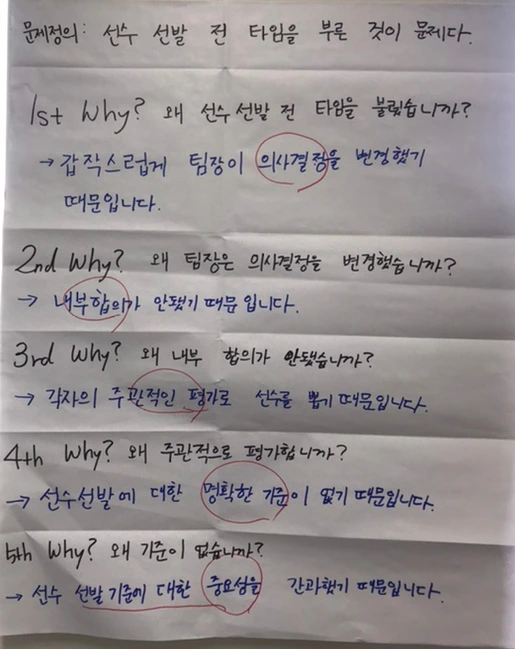 문제정의: 선수 선발 전 타임을 부른 것이 문제다.
1st Why? 왜 선수선발 전 타임을 불렀습니까?
→ 갑작스럽게 팀장이 의사결정을 변경했기
때문입니다.
2nd Why? 왜 팀장은 의사결정을 변경했습니까?
→ 내부합의가 안됐기 때문입니다.
3rd Why? 왜 내부 합의가 안됐습니까?
→ 각자의 주관적인 평가로 선수를 뽑기 때문입니다.
4th Why? 왜 주관적으로 평가합니까?
→ 선수선발에 대한 명확한 기준이 없기 때문입니다.
5th Why? 왜 기준이 없습니까?
→ 선수 선발기준에 대한 중요성을 간과했기 때문입니다.